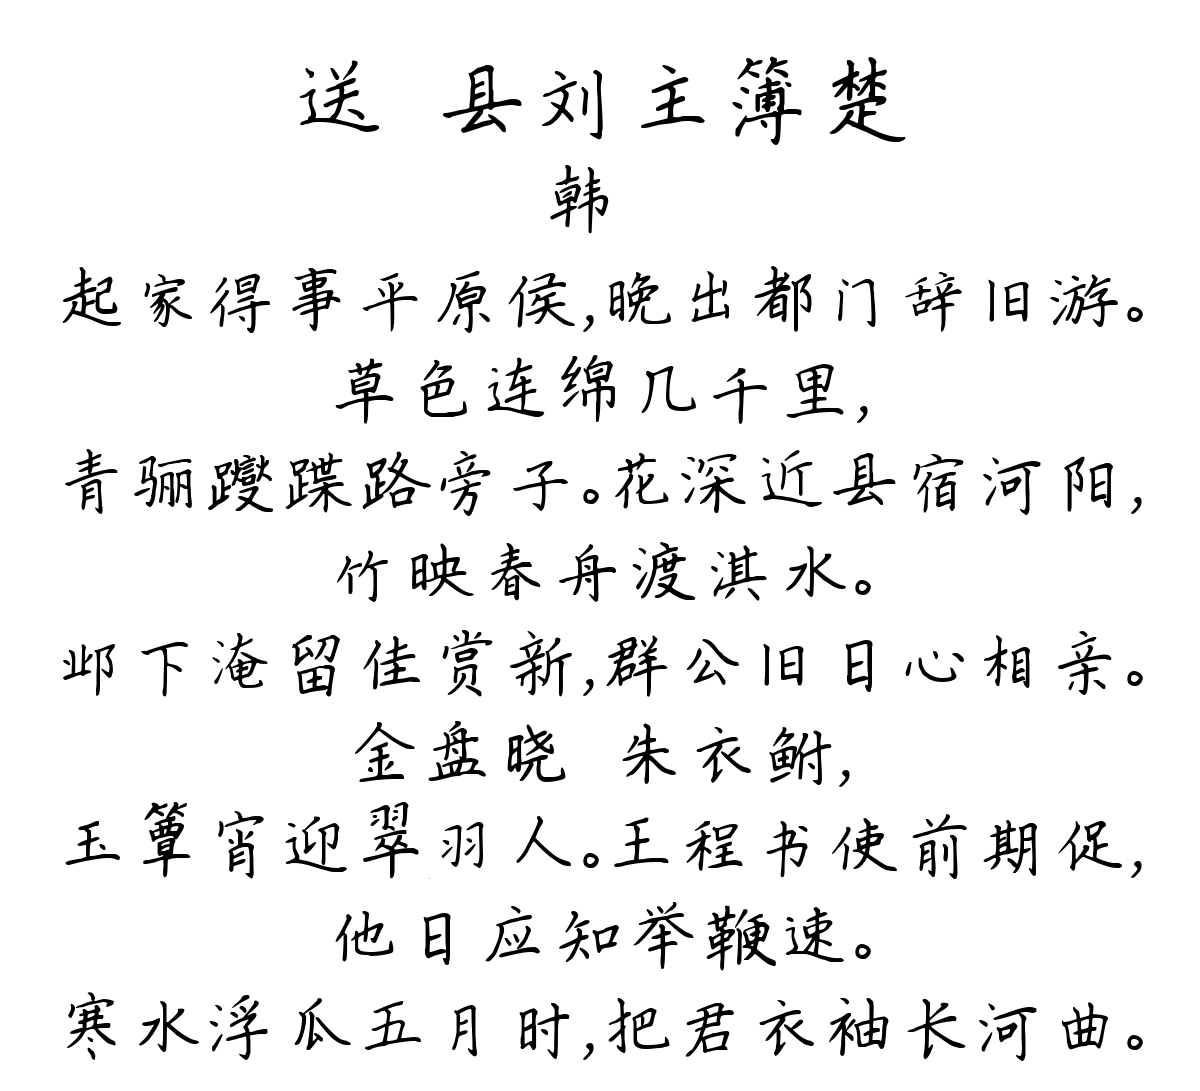 送 县刘主簿楚
韩
起家得事平原侯,晚出都门辞旧游。
草色连绵几千里,
青骊躞蹀路旁子。花深近县宿河阳,
竹映春舟渡淇水。
邺下淹留佳赏新,群公旧日心相亲。
金盘晓 朱衣鲋,
玉簟宵迎翠羽人。王程书使前期促,
他日应知举鞭速。
寒水浮瓜五月时,把君衣袖长河曲。